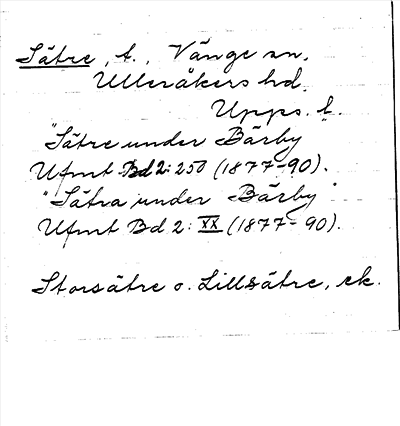 Sätre, t., Vänge sn,
Ulleråkers hd.
Upps. l.
"Sätre under Bärby
Ufmt Bd 2: 250 (1877-90).
"Sätra under Bärby"
Ufmt Bd 2: XX (1877-90).
Storsätre o. Lillsätre, ek.